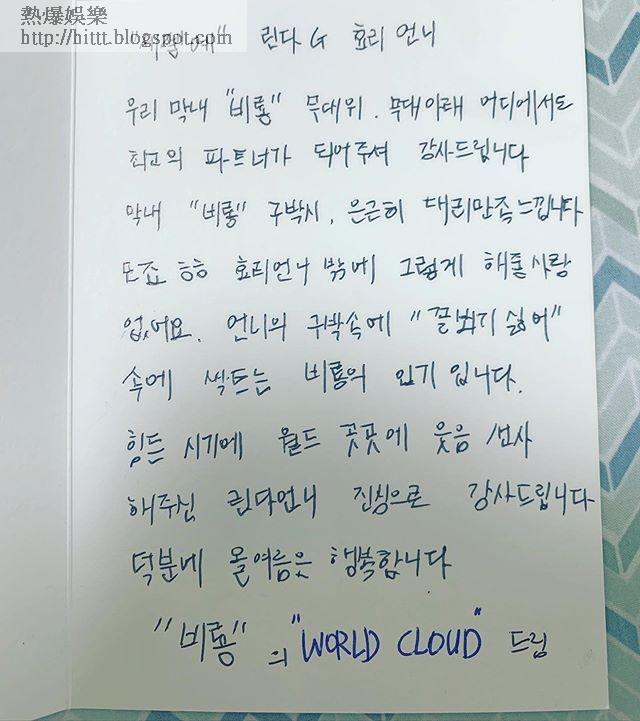 熱爆娛樂
http://hittt.blogspot.com
린다 G 효리 언니
우리 막내 "비룡" 무대위. 무대아래 어디에서도
최고의 파트너가 되어주셔 감사드립니다
막내 "비룡" 구박시, 은근히 대리만족느낍니다
또죠 ㅎㅎ 효리언니 밖에 그렇게 해줄사람
없어요. 언니의 구박속에 "꼴뵈기 싫어"
속에 싹트는 비룡의 인기 입니다.
힘든 시기에 월드 곳곳에 웃음 선사
해주신 린다언니 진심으로 감사드립니다
덕분에 올여름은 행복합니다
"비룡" 의 "WORLD CLOUD" 드림